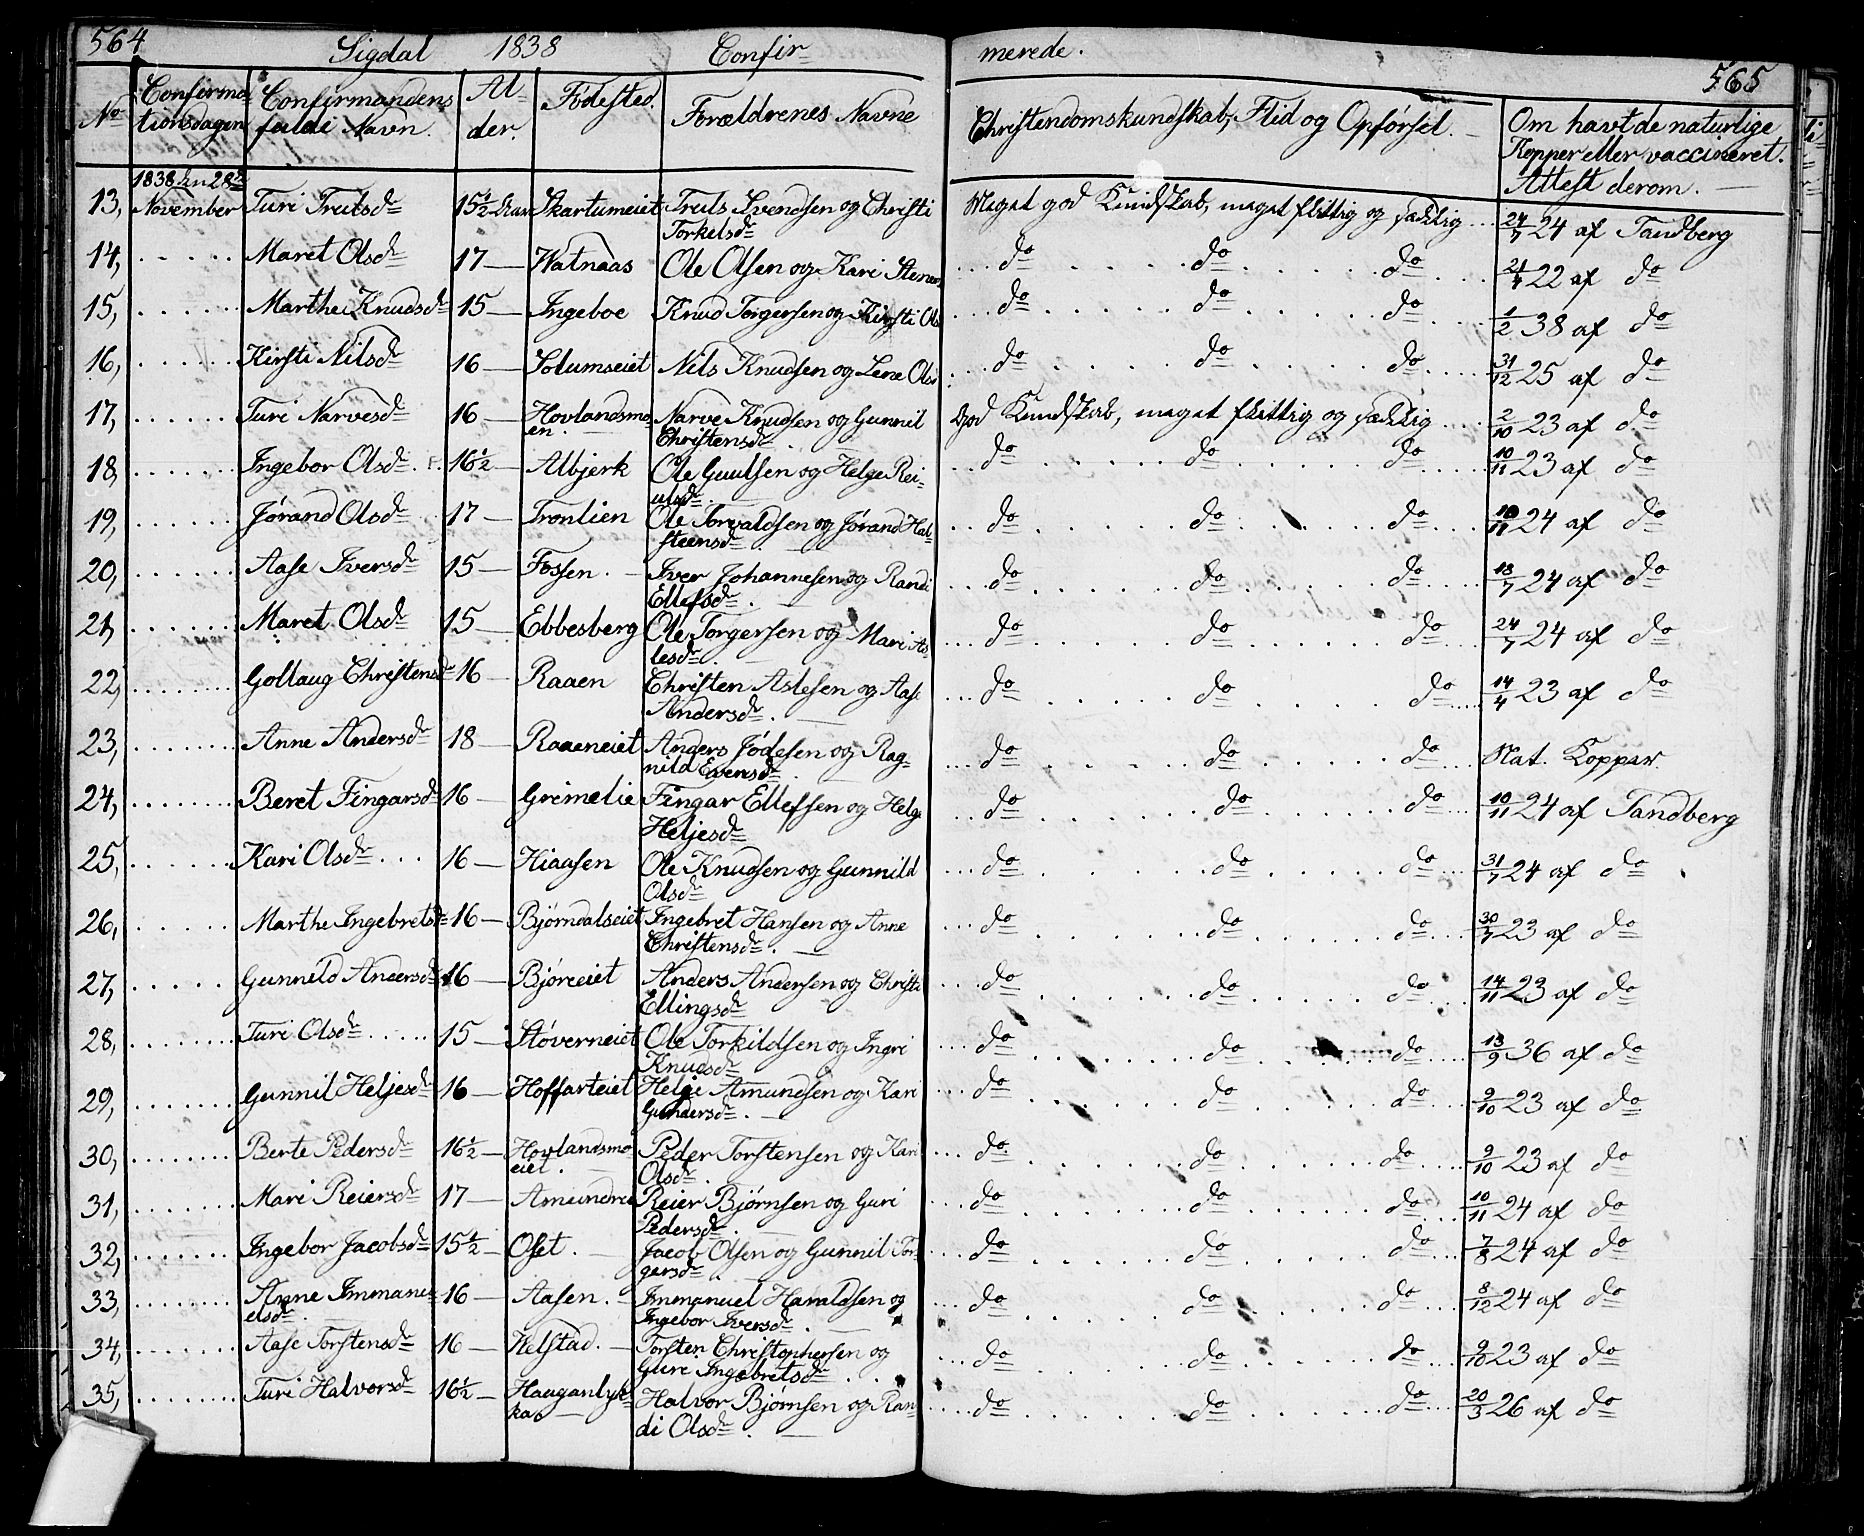 564 Sigdal 1838 Confir- merede. 565
No Confirma- tionsdagen Confirmandens fulde Navn. Al- der. Födested. Forældrenes Navne Christendomskundskab, Flid og Opförsel. Om havt de naturlige Kopper eller vaccineret. Attest derom.
1838 den 28de
13, November Turi Trulsdr 15 1/2 Skartumeiet Truls Svendsen og Christi Torkelsdr Meget god Kundskab, meget flittig og sædelig 24/7 24 af Tandberg
14, Maret Olsdr 17 Watnaas Ole Olsen og Kari do do do 21/4 22 af do
15, Marthe Knudsdr 15 Ingeboe Knud Torgersen og Kirsti Ols do do do 1/2 38 af do
16, Kirsti Nilsdr 16 Solumseiet Nils Knudsen og Lene Ols do do do 31/12 25 af do
17, Turi Narvesdr 16 Hovlandsmo- en Narve Knudsen og Gunnil Christensdr God Kundskab, meget flittig og sædelig 2/10 23 af do
18, Ingebor Olsdr 16 1/2 Albjerk Ole Guulsen og Helge Rei- ulsdr do do do 10/11 23 af do
19, Jórand Olsdr 17 Tronlien Ole Torvaldsen og Jórand Hal- steensdr do do do 10/11 24 af do
20, Aase Iversdr 15 Fossen Iver Johannesen og Randi Ellefsdr do do do 18/7 24 af do
21, Maret Olsdr 15 Ebbesberg Ole Torgersen og Mari As- lesdr do do do 24/7 24 af do
22, Gollaug Christensdr 16 Raaen Christen Aslesen og Aase Andersdr do do do 14/4 23 af do
23, Anne Andersdr 18 Raaeneiet Anders Jódesen og Rag- nild Evensdr do do do Nat. Kopper
24, Beret Fingarsdr 16 Grimelie Fingar Ellefsen og Helge Heljesdr do do do 10/11 24 af Tandberg
25, Kari Olsdr 16 Kiaasen Ole Knudsen og Gunnild Olsdr do do do 31/7 24 af do
26, Marthe Ingebretsdr 16 Bjørndalseiet Ingebret Hansen og Anne Christensdr do do do 30/7 23 af do
27, Gunnild Andersdr 16 Bjøreeiet Anders Andersen og Christi Ellingsdr do do do 14/11 23 af do
28, Turi Olsdr 15 Støverneiet Ole Torkildsen og Ingri Knudsdr do do do 13/9 36 af do
29, Gunnil Heljesdr 16 Hoffarteiet Helge Amundsen og Kari Gundersdr do do do 9/10 23 af do
30, Berte Pedersdr 16 1/2 Hovlandsmo- eiet Peder Torstensen og Kari Olsdr do do do 9/10 23 af do
31, Mari Reiersdr 17 Reier Bjørnsen og Guri Pedersdr do do do 10/11 24 af do
32, Ingebor Jacobsdr 15 1/2 Oset Jacob Olsen og Gunnil Tor- gersdr do do do 7/8 24 af do
33, Anne Immanu- elsdr 16 Aasen Immanuel Haraldsen og Ingebor Iversdr do do do 8/12 24 af do
34, Aase Torstensdr 16 Welstad Torsten Christophersen og Gure Ingebretsdr do do do 9/10 23 af do
35, Turi Halvorsdr 16 1/2 Haaganlyk- ka Halvor Bjørnsen og Ran- di Olsdr do do do 20/3 26 af do